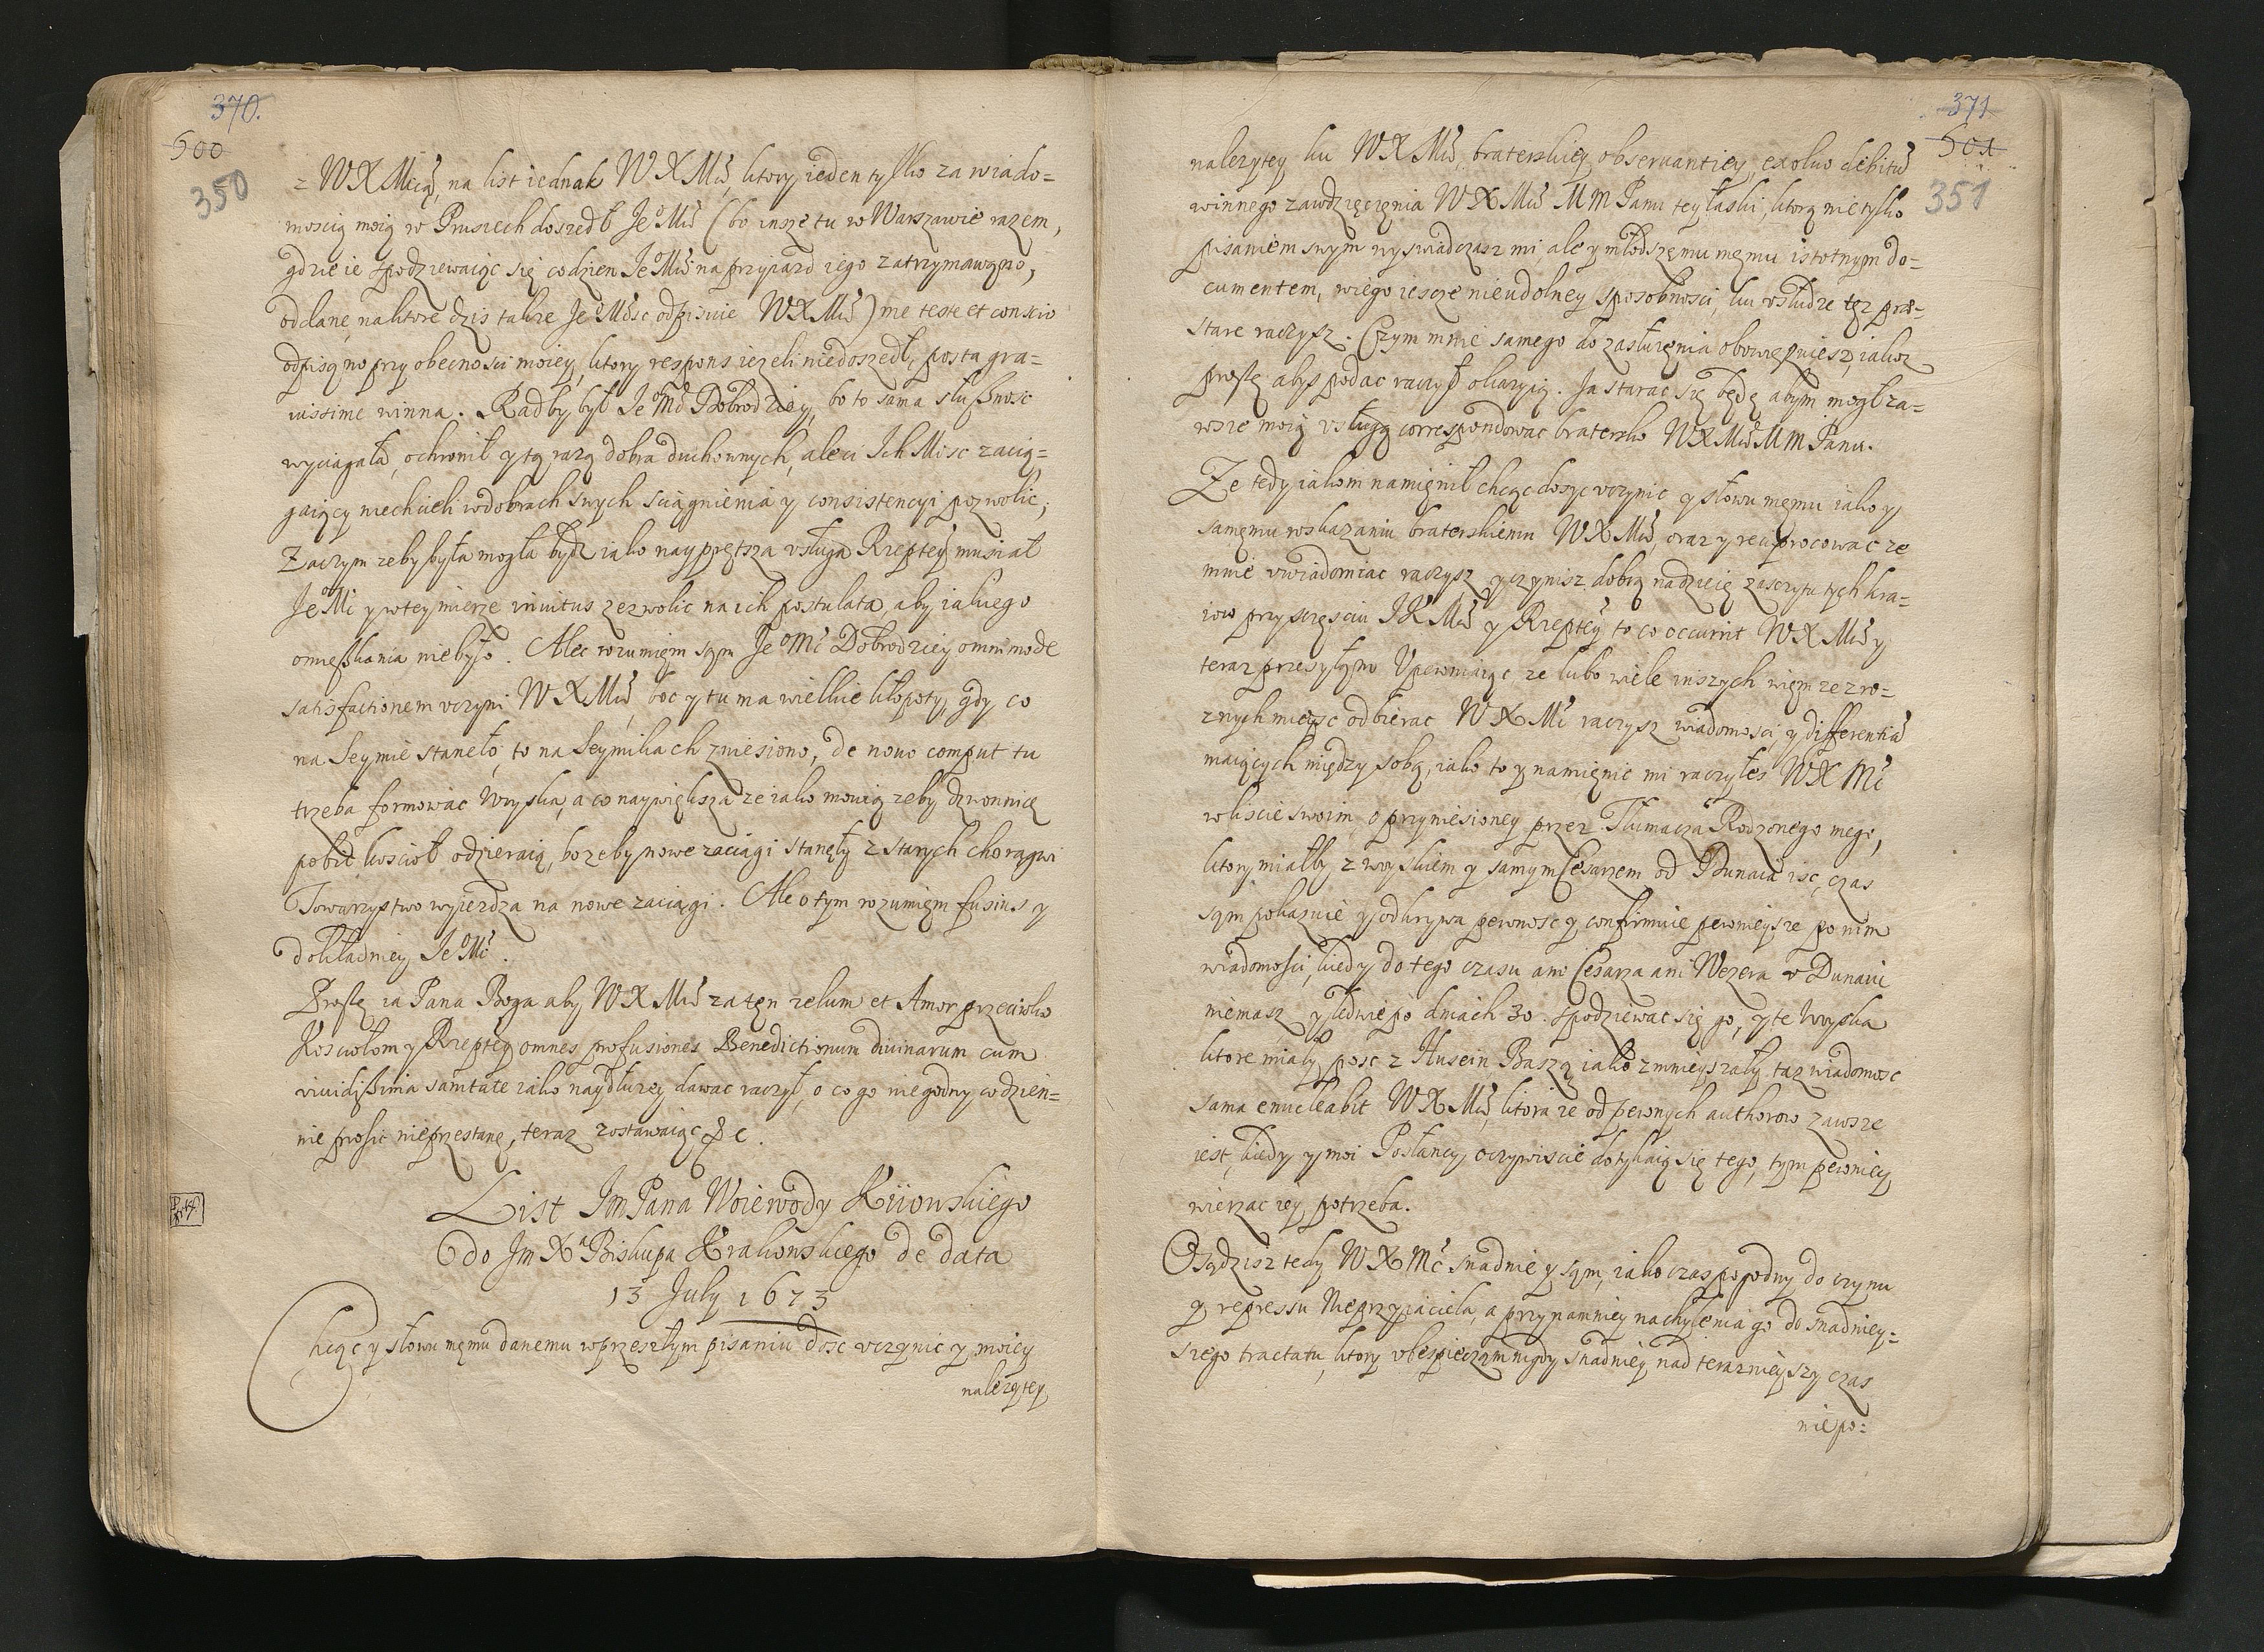 370.
500
350
z WXMcią, na list iednak WXMći, ktory ieden tylko za wiado=
moscią moią w Prusiech doszedł JeMći (bo insze tu w Warszawie razem,
gdzie ie spodziewaiąc się codzien JeoMći na przyiazd iego zatrzymawano,
oddane, na ktore dzis takze JeoMosc odpisuie WXMći) me teste et conscio
odpisano przy obecnosci moiey, ktory respons iezeli niedoszedł, posta gra=
uissime winna. Radby był JeoMć Dobrodziey, bo to sama słusznosc
wyciągała, ochronił y tą razą dobra duchownych, ale ci IchMosc zacią=
gaiący niechcieli w dobrach swych sciągnienia y consistencyi pozwolic;
Zaczym zeby była mogła bydz iako nayprętsza vsługa Rzeptey musiał
JeoMć y w tey mierze inuitus zezwolic na ich postulata, aby iakiego
omięszkania niebyło. Alec rozumięm sąm JeoMć Dobrodziey omnimode
satisfactionem vczyni WXMći, boc y tu ma wielkie kłopoty, gdy co
na Seymie staneło, to na Seymikach zniesiono, de nouo comput tu
trzeba formowac Woyska, a co naywiększa ze iako mowią zeby dzwonnicę
pobić kosciół odzieraią, bo zeby nowe zaciągi stanęły z starych chorągwi
Towarzystwo wyiezdza na nowe zaciągi. Ale o tym rozumięm fusius y
dokładniey JeoMć.
Proszę ia Pana Boga aby WXMći za tęn zelum et Amor przeciwko
Kosciołom y Rzeptey omnes profusiones Benedictionum diuinarum cum
viuidissima sanitate iako naydłuzey dawac raczył, o co go niegodny codzien=
nie prosic nieprzestanę, teraz zostawaiąc &c.
List Jm Pana Woiewody Kiiowskiego
do Jm Xa Biskupa Krakowskiego de data
13 July 1673
Chcąc y słowu męmu danemu w przeszłym pisaniu dosc vczynic y moiey
nalezytey
371
501
351
nalezytey ku WXMći, braterskiey obseruantiey, exoluo debitu
winnego zawdzięczęnia WXMći MMPanu tey łaski, ktorą nietylko
pisaniem swym wyswiadczasz mi ale y młodszęmu męmu istotnym do=
cumentem, w iego ieszcze nieudolney sposobnosci, ku vsłudze tęz prae=
stare raczysz. Czym mnie samego do zasłuzęnia obowięzuiesz, iakoz
proszę abys podac raczył okazyią. Ja starac się będę abym mogł za=
wsze moią vsługą correspondowac bratersko WXMći MMPanu.
Ze tedy iakom namięnił chcąc dosyc vczynic y słowu męmu iako y
samęmu roskazaniu braterskiemu WXMći, oraz y reciprocowac ze
mnie vwiadomiac raczysz y czynisz dobrą nadzieię zaszczytu tych kra=
iow przy szczęsciu JKMći y Rzeptey to co occurrit WXMći y
teraz przesyłąm Vpewniaiąc, ze lubo wiele inszych więm ze z ro=
znych mieysc odbierac WXMć raczysz wiadomosci, y differentia
maiących między sobą, iako to y namięnic mi raczyłes WXMć
w liscie swoim, o przyniesioney przez Tłumacza Rodzonego mego,
ktory miałby z woyskiem y samym Cesarzem od Dunaia isc, czas
sąm pokazuie y odkrywa pewnosc y confirmuie pewnieysze po nim
wiadomosci, kiedy do tego czasu ani Cesarza ani Wezera v Dunaiu
niemasz y ledwie po dniach 30. spodziewac się go, y te Woyska
ktore miały posc z Husein Baszą iako zmnieyszały, taz wiadomosc
sama enucleabit WXMći, ktora ze od pewnych authorow zawsze
iest, kiedy y moi Posłancy oczywiscie dotykaią się tego, tym pewniey
wierzac iey potrzeba.
Osądzisz tedy WXMć snadnie y sąm, iako czas pogodny do czynu
y repressu Nieprzyiaciela, a przynamniey nachylenia go do snadniey=
szego tractatu, ktory vbespieczam nigdy snadniey nad teraznieyszy czas
niepo=